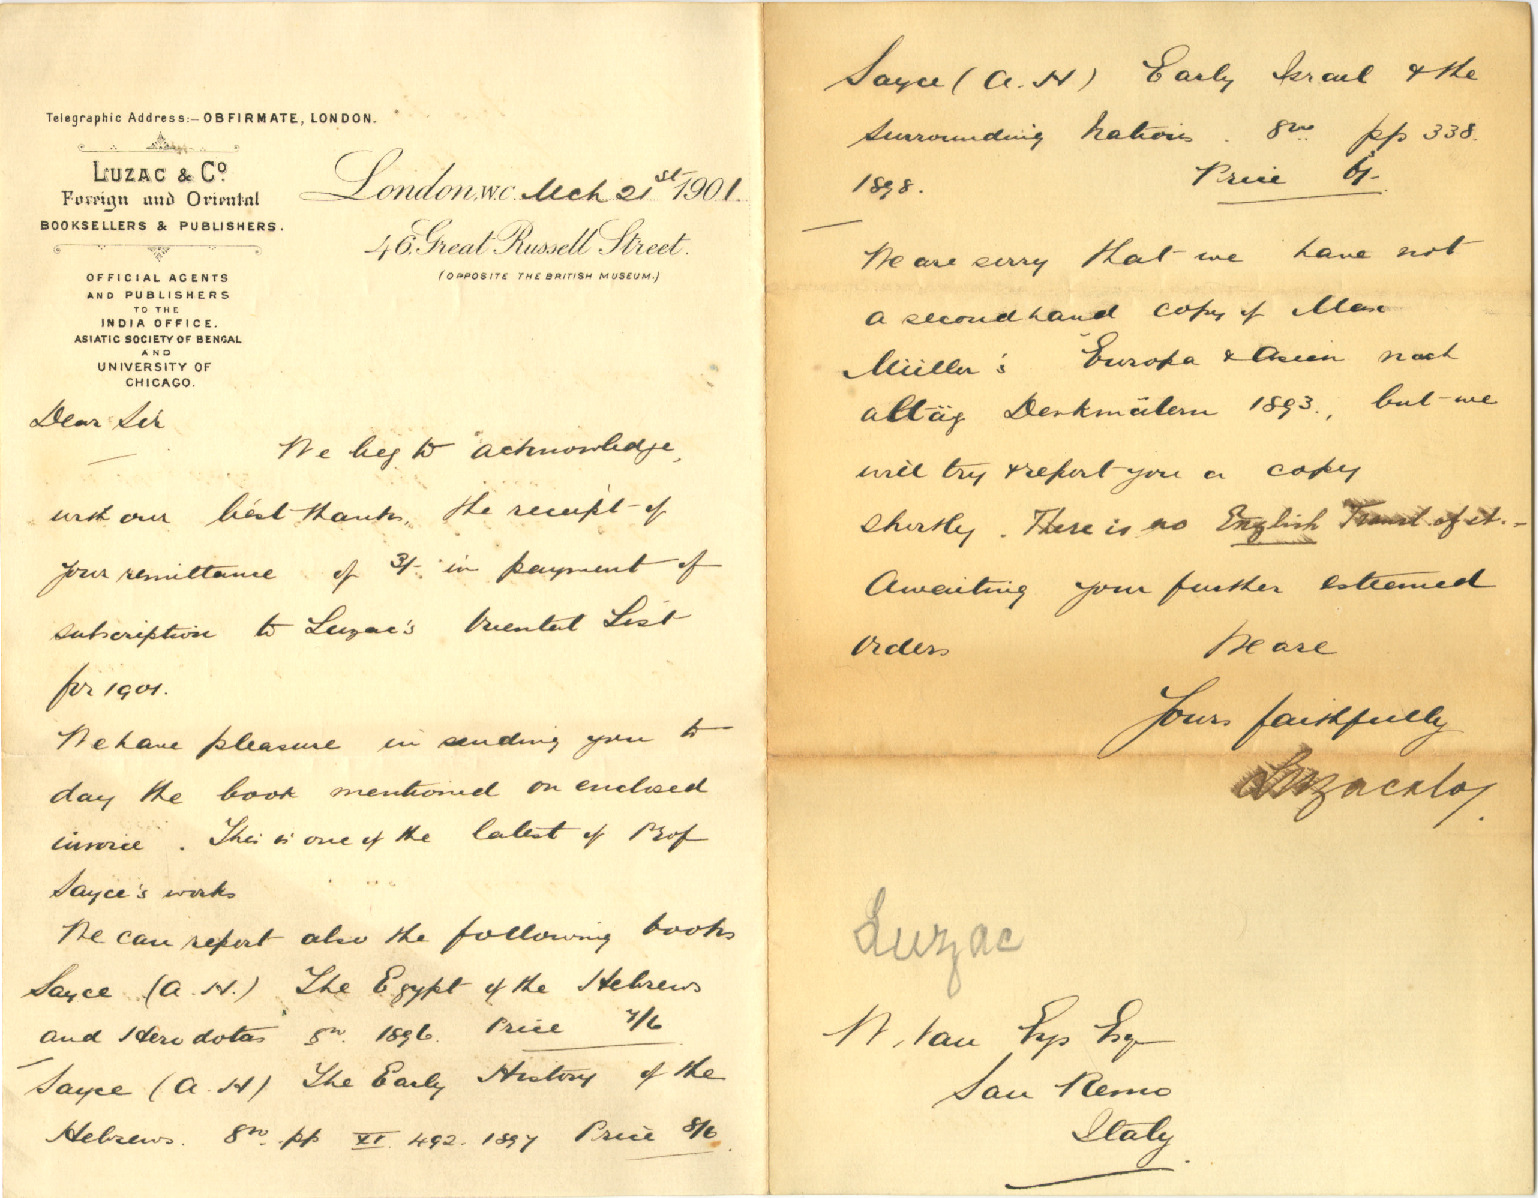 Telegraphic Address:— OBFIRMATE, LONDON.
LUZAC & Co
Foreign and Oriental
BOOKSELLERS & PUBLISHERS.
OFFICIAL AGENTS
AND PUBLISHERS
TO THE
INDIA OFFICE.
ASIATIC SOCIETY OF BENGAL
AND
UNIVERSITY OF
CHICAGO.
London, W.C. Mch 21st 1901.
46, Great Russell Street.
(OPPOSITE THE BRITISH MUSEUM.)
Dear Sir
We beg to acknowledge,
with our best thanks, the receipt of
your remittance of 3/- in payment of
subscription to Luzac's Oriental List
for 1901.
We have pleasure in sending you to
day the book mentioned on enclosed
invoice. This is one of the latest of Prof
Sayce's works
We can report also the following books
Sayce (A. H.) The Egypt of the Hebrews
and Herodotas 8vo. 1896. Price 7/6
Sayce (A. H) The Early History of the
Hebrews. 8vo. pp XI. 492. 1897 Price 8/6
Sayce (A. H) Early Israel & the
surrounding Nations. 8vo. pp 338.
1898. Price 6/-
We are sorry that we have not
a secondhand copy of Max
Müller's Europa & Asien nach
altäg Denkmälern 1893., but we
will try & report you a copy
shortly. There is no English Transl of it. -
Awaiting your further esteemed
orders We are
Yours faithfully
Luzac & Co.
Luzac
W. van Eys Esq
San Remo
Italy